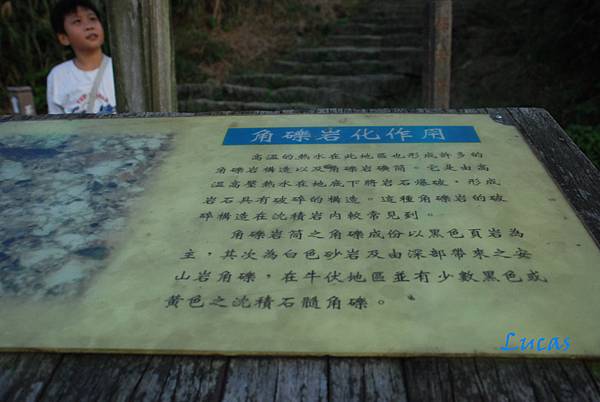 角礫岩化作用
高溫的熱水在此地區也形成許多的
角礫岩構造以及角礫岩礦筒。它是由高
溫高壓熱水在地底下將岩石爆破，形成
岩石具有破碎的構造。這種角礫岩的破
碎構造在沈積岩內較常見到。
角礫岩筒之角礫成份以黑色頁岩為
主，其次為白色砂岩及由深部帶來之安
山岩角礫，在牛伏地區並有少數黑色或
黃色之沈積石髓角礫。
Lucas